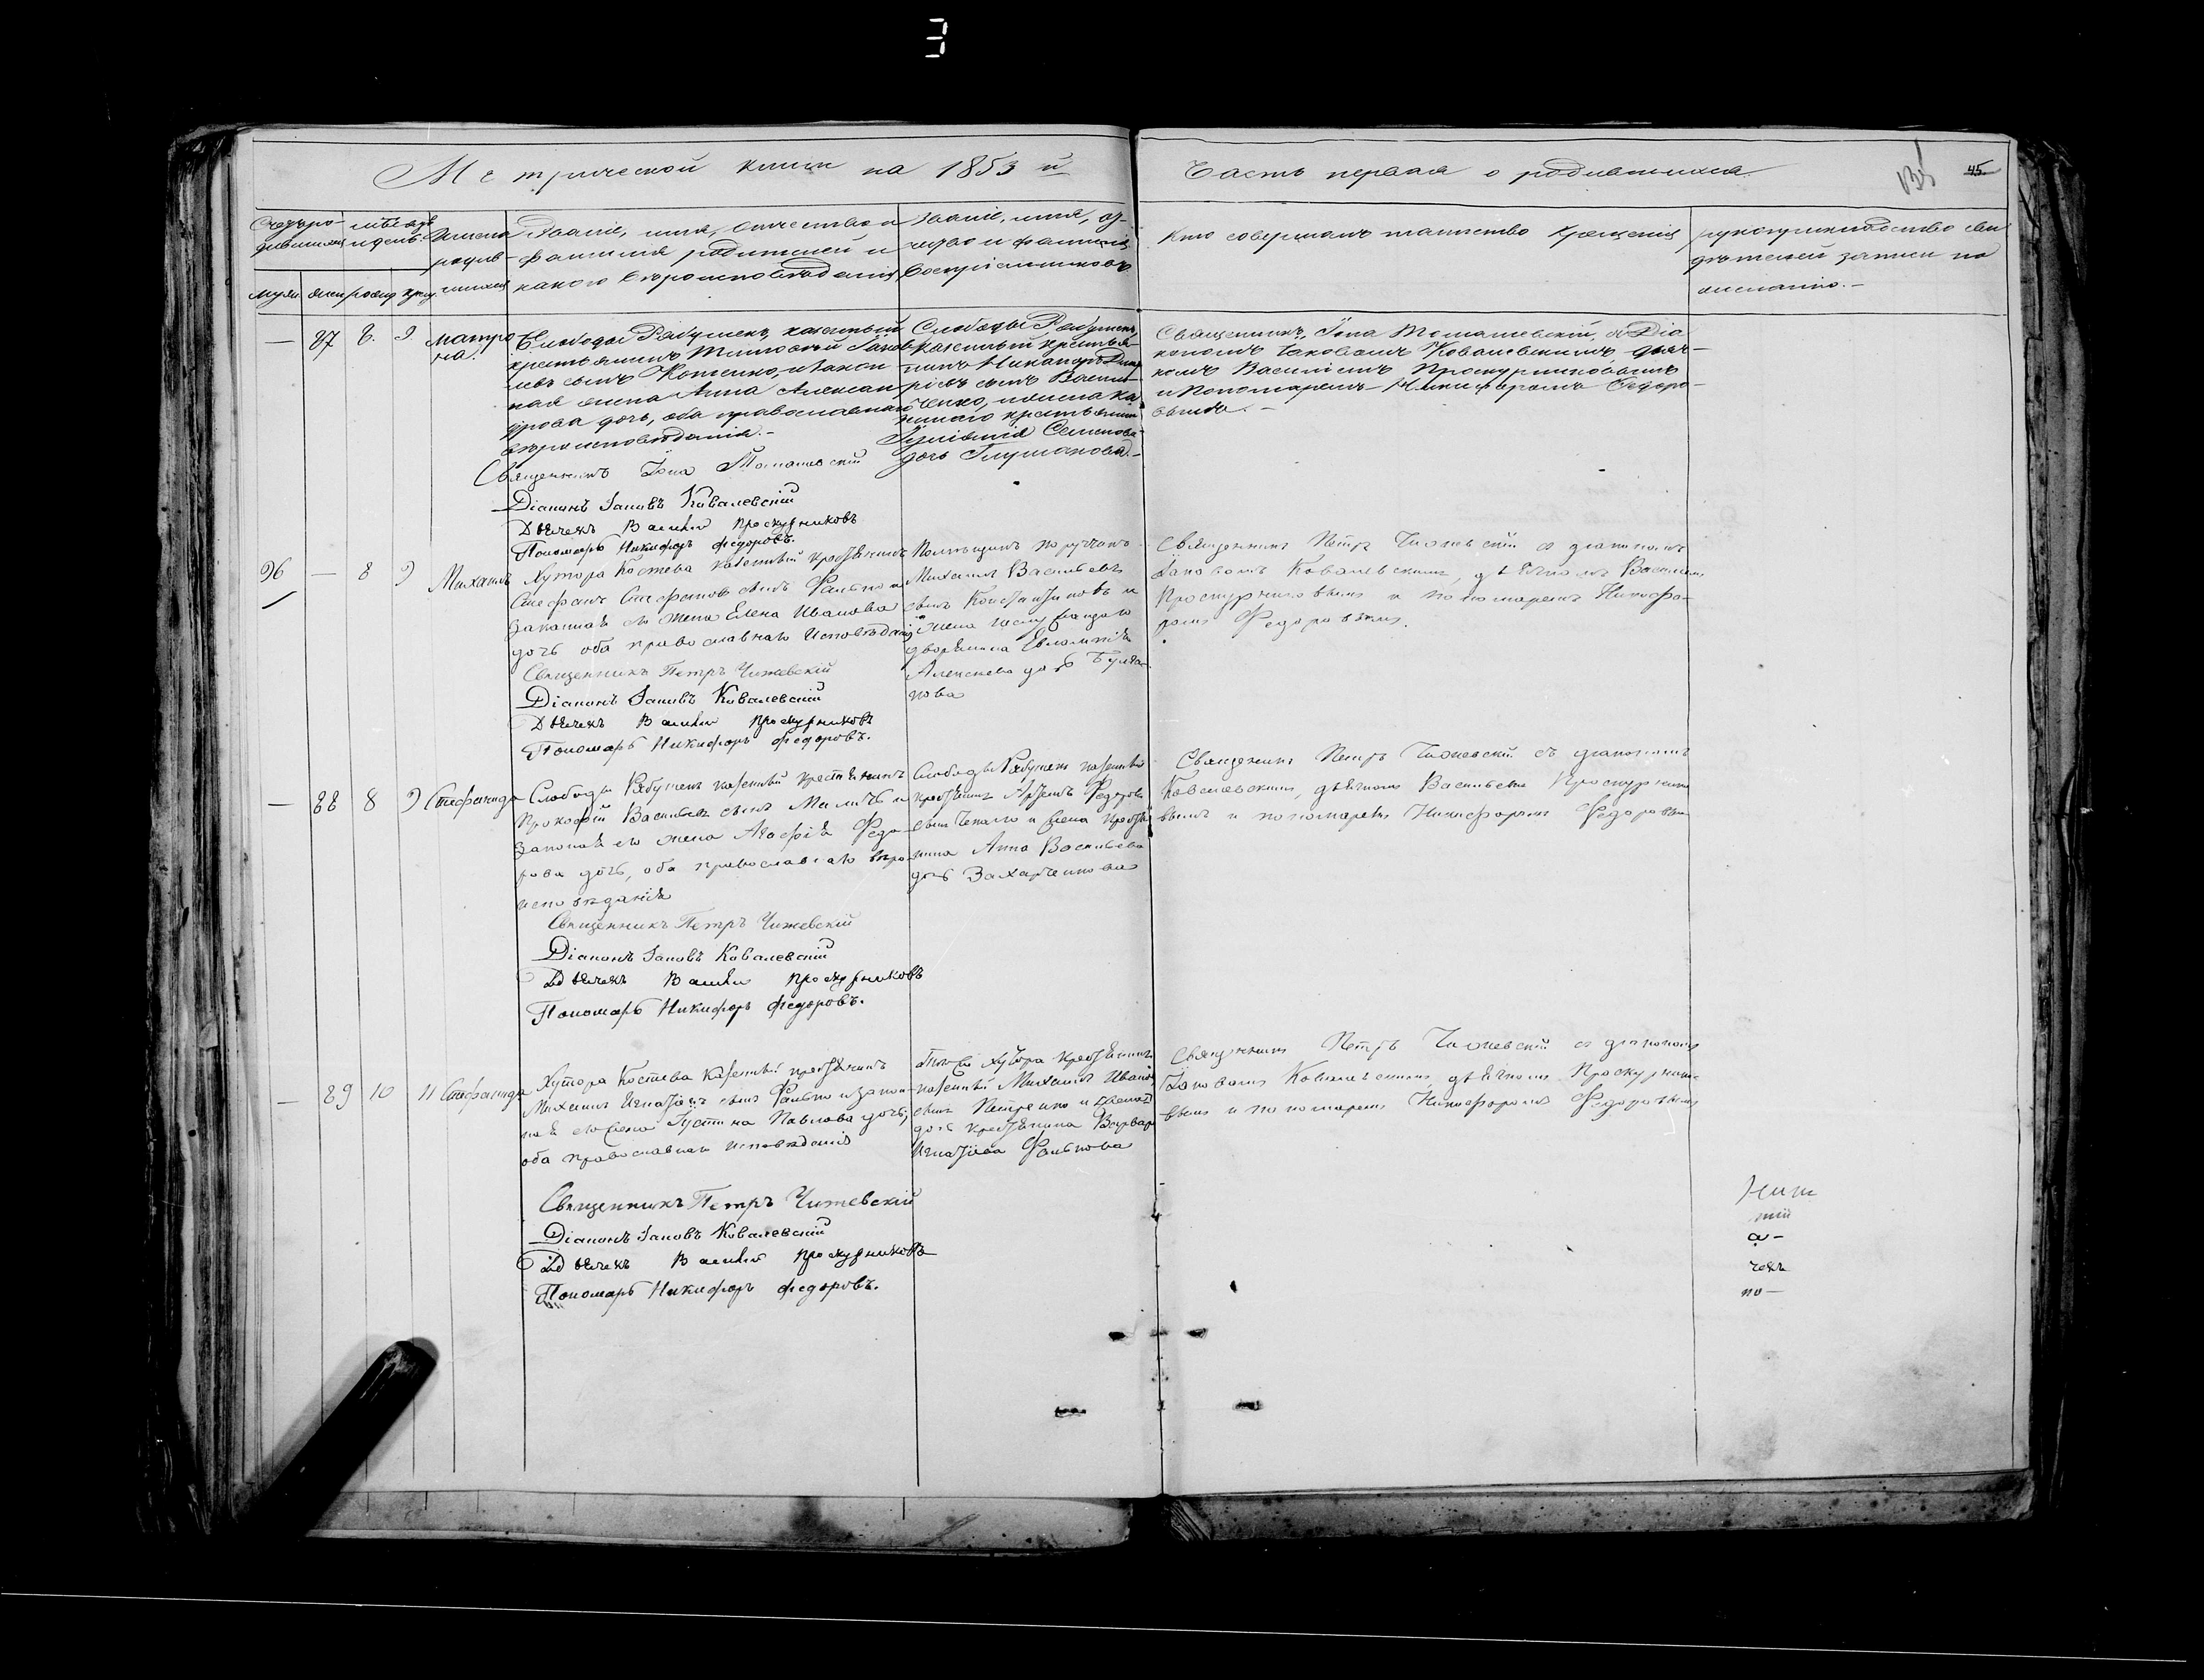 3
Метрической книги на 1853 й
Часть первая о родившихся
45.
Счетъ ро-
дившихся
мѣсяцъ
и день.
Имена
родив-
шихся
Званіе, имя, отчество и
фамилія родителей и
какого вѣроисповѣданія
Званіе, имя, от-
чество и фамилія
воспріемниковъ
Кто совершалъ таинство крещенія
рукоприкладство сви
дѣтелей записи по
желанію.-
муж. жен. рожд. крещ.
— 87 6. 9. Матро
на.
Слободы Рябушекъ, казенный
крестьянинъ Тимофей Яков-
левъ сынъ Котенко, и закон
ная жена Анна Алексан
дрова дочь, оба православнаго
вѣроисповѣданія.-
Священникъ Іона Томашевскій
Діаконъ Іаковъ Ковалевскій
Дьячекъ Василій Проскурниковъ
Пономарь Никифоръ Федоровъ.
Слободы Рябушекъ,
казенный крестья-
нинъ Никаноръ Дмит
ріевъ сынъ Васил-
ченко, и жена ка
зеннаго крестьянина
Семенова
дочь Глушакова.-
Священникъ, Іона Томашевскій, съ Діа
кономъ Іаковомъ Ковалевскимъ, дьяч-
комъ Василіемъ Проскурниковымъ
и Пономаремъ Никифоромъ Федоро-
вымъ.-
96 — 8 9 Михаилъ
Хутора Костева казенный крестьянинъ
Стефанъ Стефановъ сынъ Фалько и
законная его жена Елена Иванова
дочь оба православнаго исповѣданія
Священникъ Петръ Чижевскій
Діаконъ Іаковъ Ковалевскій
Дьячекъ Василій Проскурниковъ
Пономарь Никифоръ Федоровъ.
Помѣщикъ поручикъ
Михаилъ Васильевъ
сынъ Константиновъ и
жена
дворянина Евлампія
Алексеева дочь Булга-
кова
Священникъ Петръ Чижевскій съ діакономъ
Іаковомъ Ковалевскимъ, дьячкомъ Василіемъ
Проскурниковымъ и пономаремъ Никифо-
ромъ Федоровымъ.
— 88 8 9 Стефанида
Слободы Рябушекъ казенный крестьянинъ
Прокофій Васильевъ сынъ и
законная его жена Агафія Федо-
рова дочь, оба православнаго вѣро-
исповѣданія
Священникъ Петръ Чижевскій
Діаконъ Іаковъ Ковалевскій
Дьячекъ Василій Проскурниковъ
Пономарь Никифоръ Федоровъ.
Слободы Рябушекъ казенный
крестьянинъ Артемъ Федоровъ
сынъ и жена крестья
нина Анна Васильева
дочь Захарченкова
Священникъ Петръ Чижевскій съ діакономъ
Ковалевскимъ, дьячкомъ Васильемъ Проскурнико
вымъ и пономаремъ Никифоромъ Федоровымъ
— 89 10 11 Стефанида
Хутора Костева казенный крестьянинъ
Михаилъ Игнатіевъ сынъ Фалько и закон-
ная его жена Устина Павлова дочь,
оба православнаго исповѣданія
Священникъ Петръ Чижевскій
Діаконъ Іаковъ Ковалевскій
Дьячекъ Василій Проскурниковъ
Пономарь Никифоръ Федоровъ.
Того хутора крестьянинъ
казенный Михаилъ Ивановъ
сынъ Петренко и
дочь крестьянина Варвара
Игнатіева Фалькова
Священникъ Петръ Чижевскій съ діакономъ
Іаковомъ Ковалевскимъ, дьячкомъ Проскурнико-
вымъ и пономаремъ Никифоромъ Федоровымъ